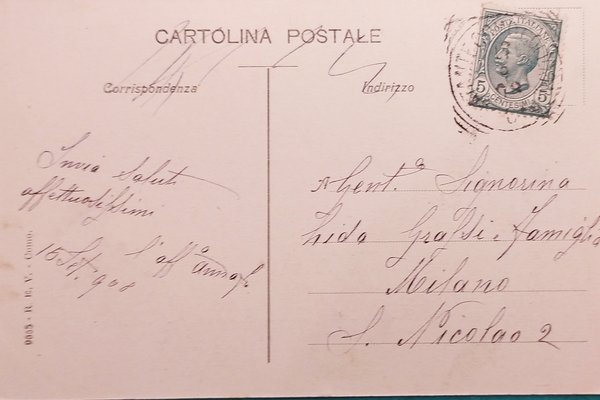 CARTOLINA POSTALE
Corrispondenza
Indirizzo
POSTE ITALIANE
5 CENTESIMI 5
Invia Saluti
affettuosissimi
l'aff.a
15 908
Gent.a Signorina
Lida Grassi e Famiglia
Milano
S. Nicolao 2
9055 - R. M. V. - Como.